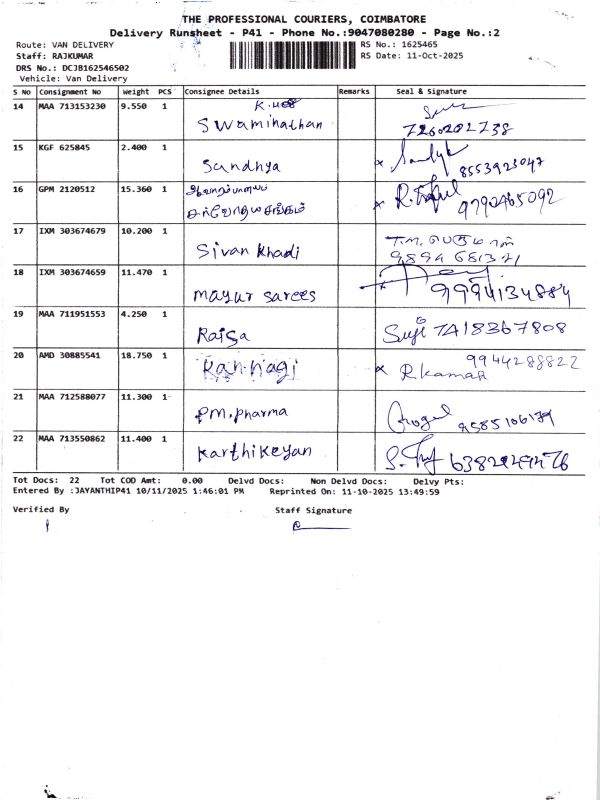 THE PROFESSIONAL COURIERS, COIMBATORE
Delivery Runsheet - P41 - Phone No.:9047080280 - Page No.:2
Route: VAN DELIVERY
RS No.: 1625465
Staff: RAJKUMAR
RS Date: 11-Oct-2025
DRS No.: DCJB162546502
Vehicle: Van Delivery
S No Consignment No Weight PCS Consignee Details Remarks Seal & Signature
14 MAA 713153230 9.550 1
Swaminathan
15 KGF 625845 2.400 1
Sandhya 8553923047
16 GPM 2120512 15.360 1
9790465092
17 IXM 303674679 10.200 1
Sivan Khadi
18 IXM 303674659 11.470 1
mayur sarees 9994134884
19 MAA 711951553 4.250 1
Raiga Suji 7418367808
20 AMD 30885541 18.750 1 9944288822
Kannagi R Kamar
21 MAA 712588077 11.300 1
PM.pharma
22 MAA 713550862 11.400 1
Karthikeyan
Tot Docs: 22 Tot COD Amt: 0.00 Delvd Docs: Non Delvd Docs: Delvy Pts:
Entered By :JAYANTHIP41 10/11/2025 1:46:01 PM Reprinted On: 11-10-2025 13:49:59
Verified By Staff Signature